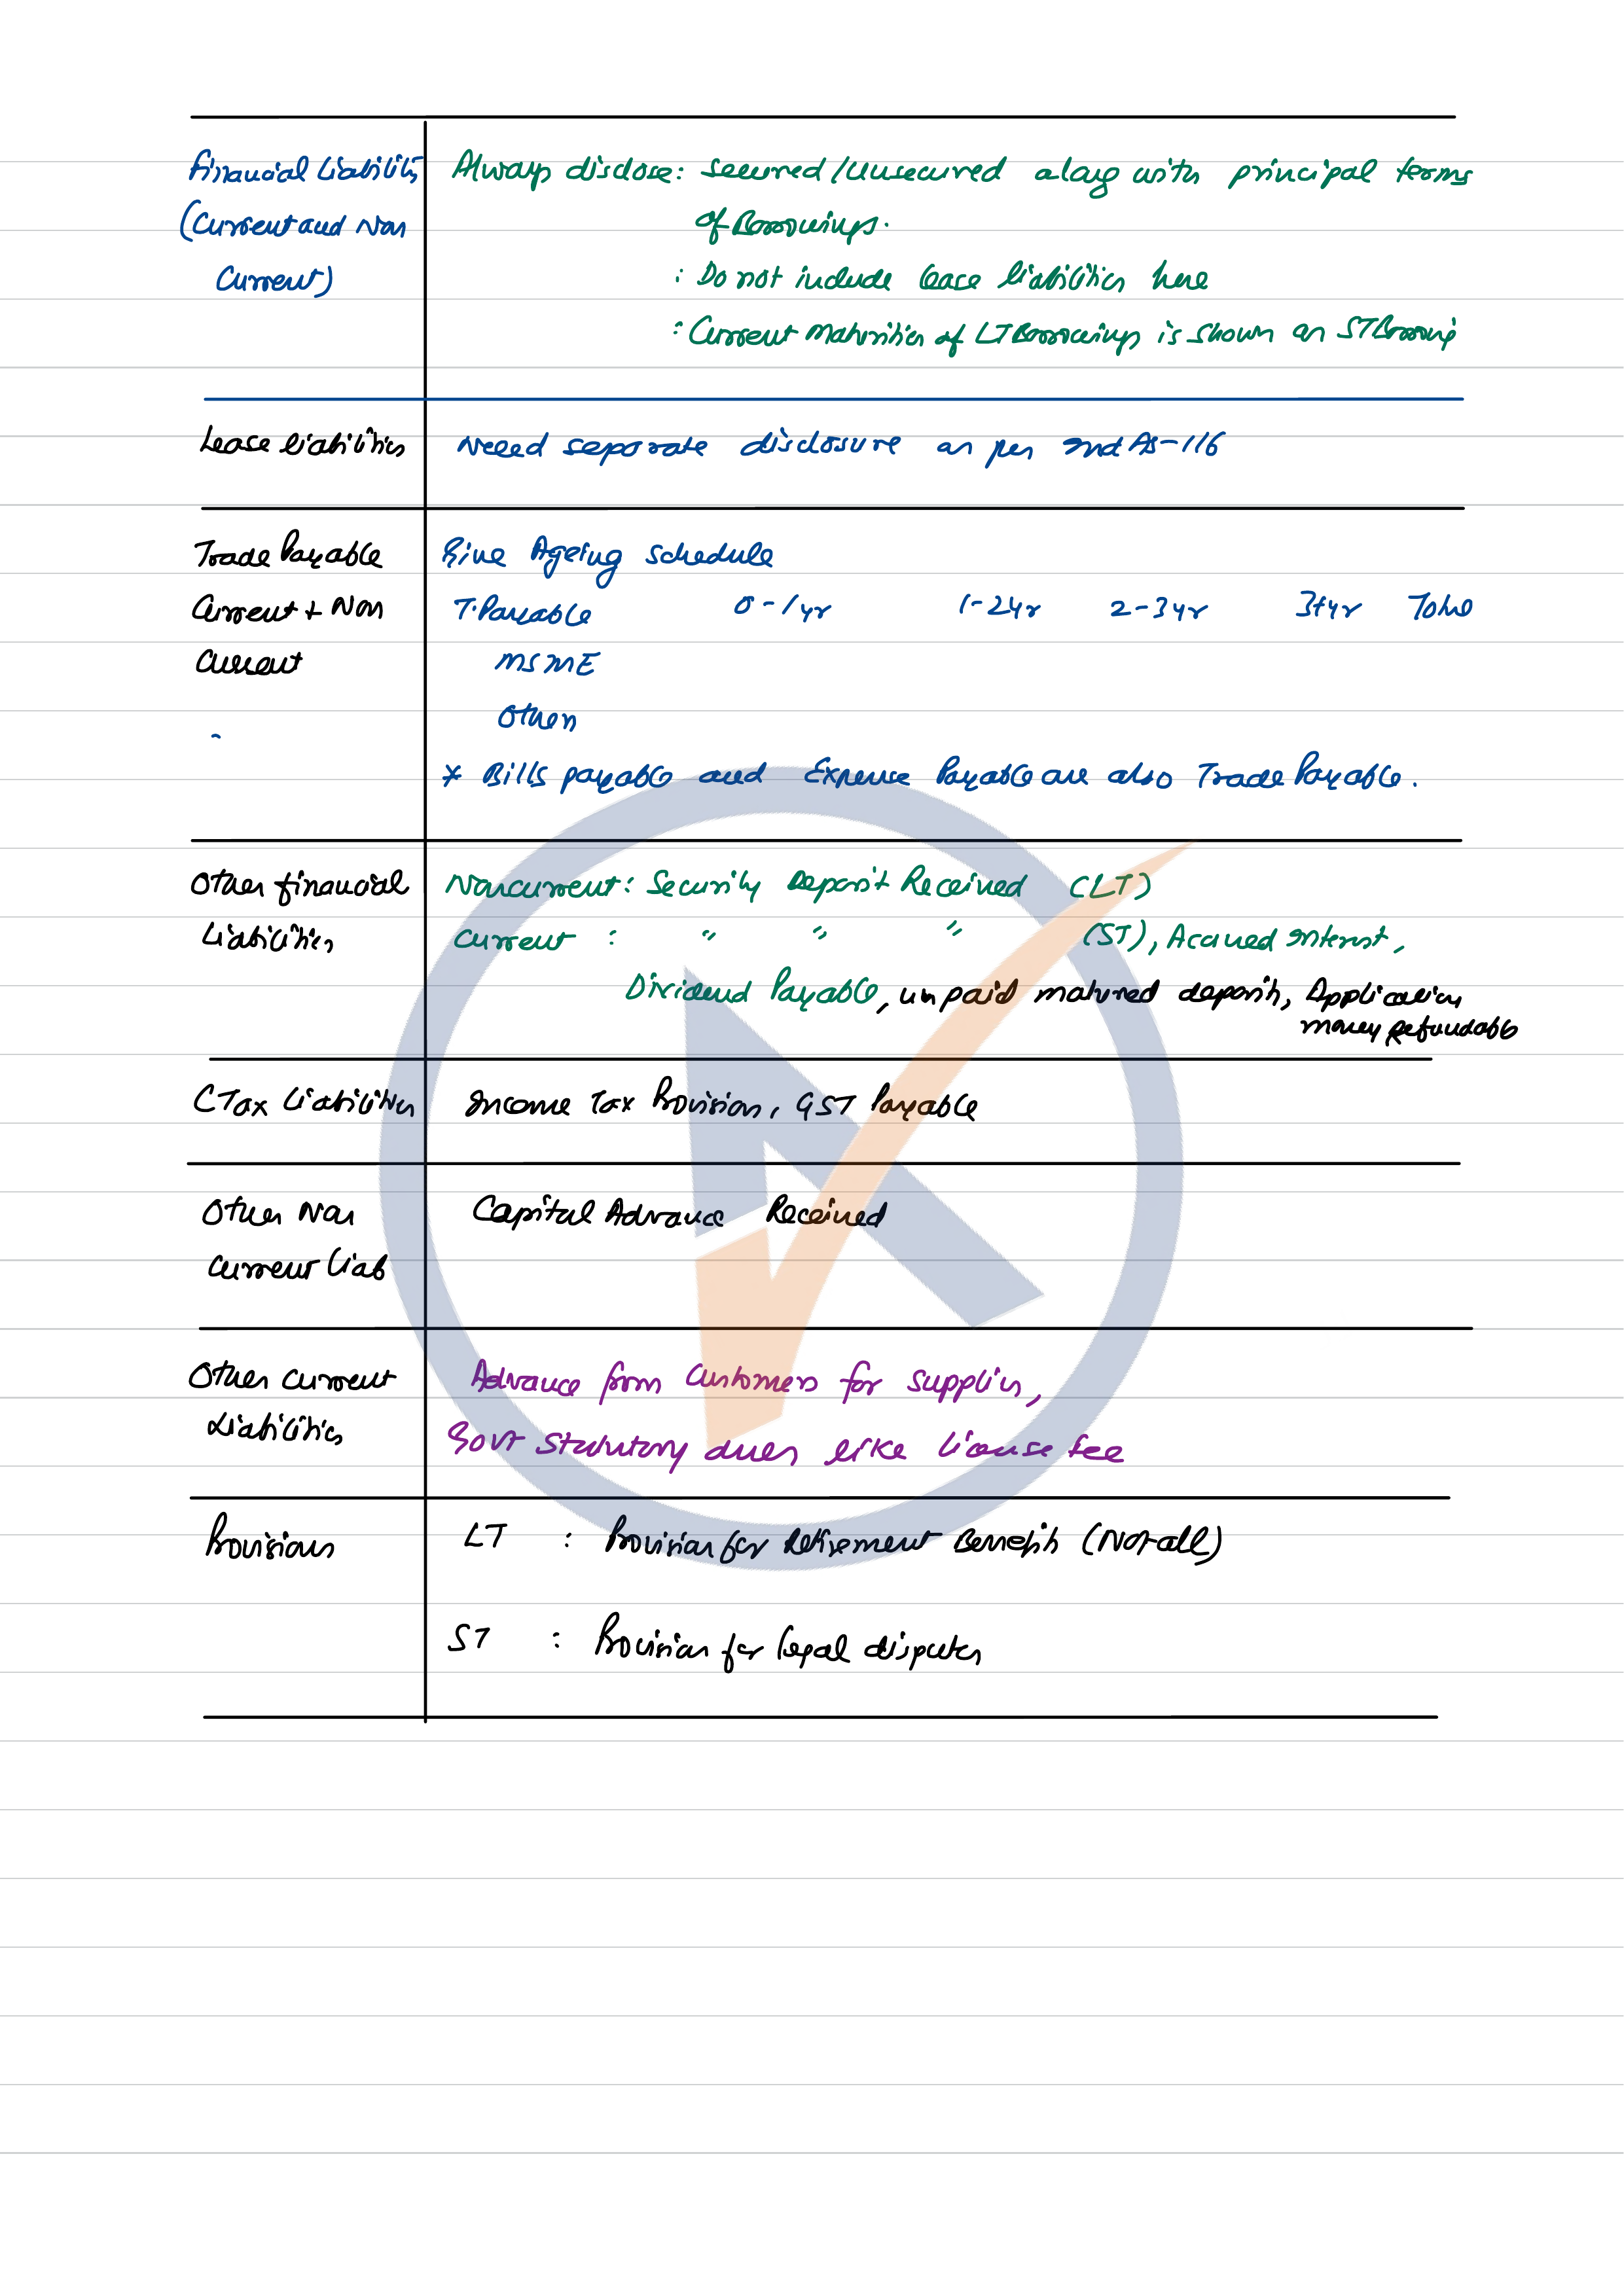 Financial Liability Always disclose: Secured/Unsecured along with principal terms
(Current and Non of Borrowings.
Current) : Do not include lease liabilities here
: Current Maturities of LT Borrowings is shown as ST Borrowing
Lease liabilities Need separate disclosure as per Ind AS-116
Trade Payable Give Ageing schedule
Current + Non T.Payable 0-1yr 1-2yr 2-3yr 3+yr Total
Current MSME
Others
* Bills payable and Expense Payable are also Trade Payable.
Other financial Noncurrent: Security Deposit Received (LT)
Liabilities Current : " " " (ST), Accrued Interest,
Dividend Payable, unpaid matured deposits, Application
money refundable
C Tax Liabilities Income Tax Provision, GST Payable
Other Non Capital Advance Received
current Liab
Other current Advance from Customers for supplies,
Liabilities Govt Statutory dues like license fee
Provisions LT : Provision for Retirement Benefits (Not all)
ST : Provision for legal disputes